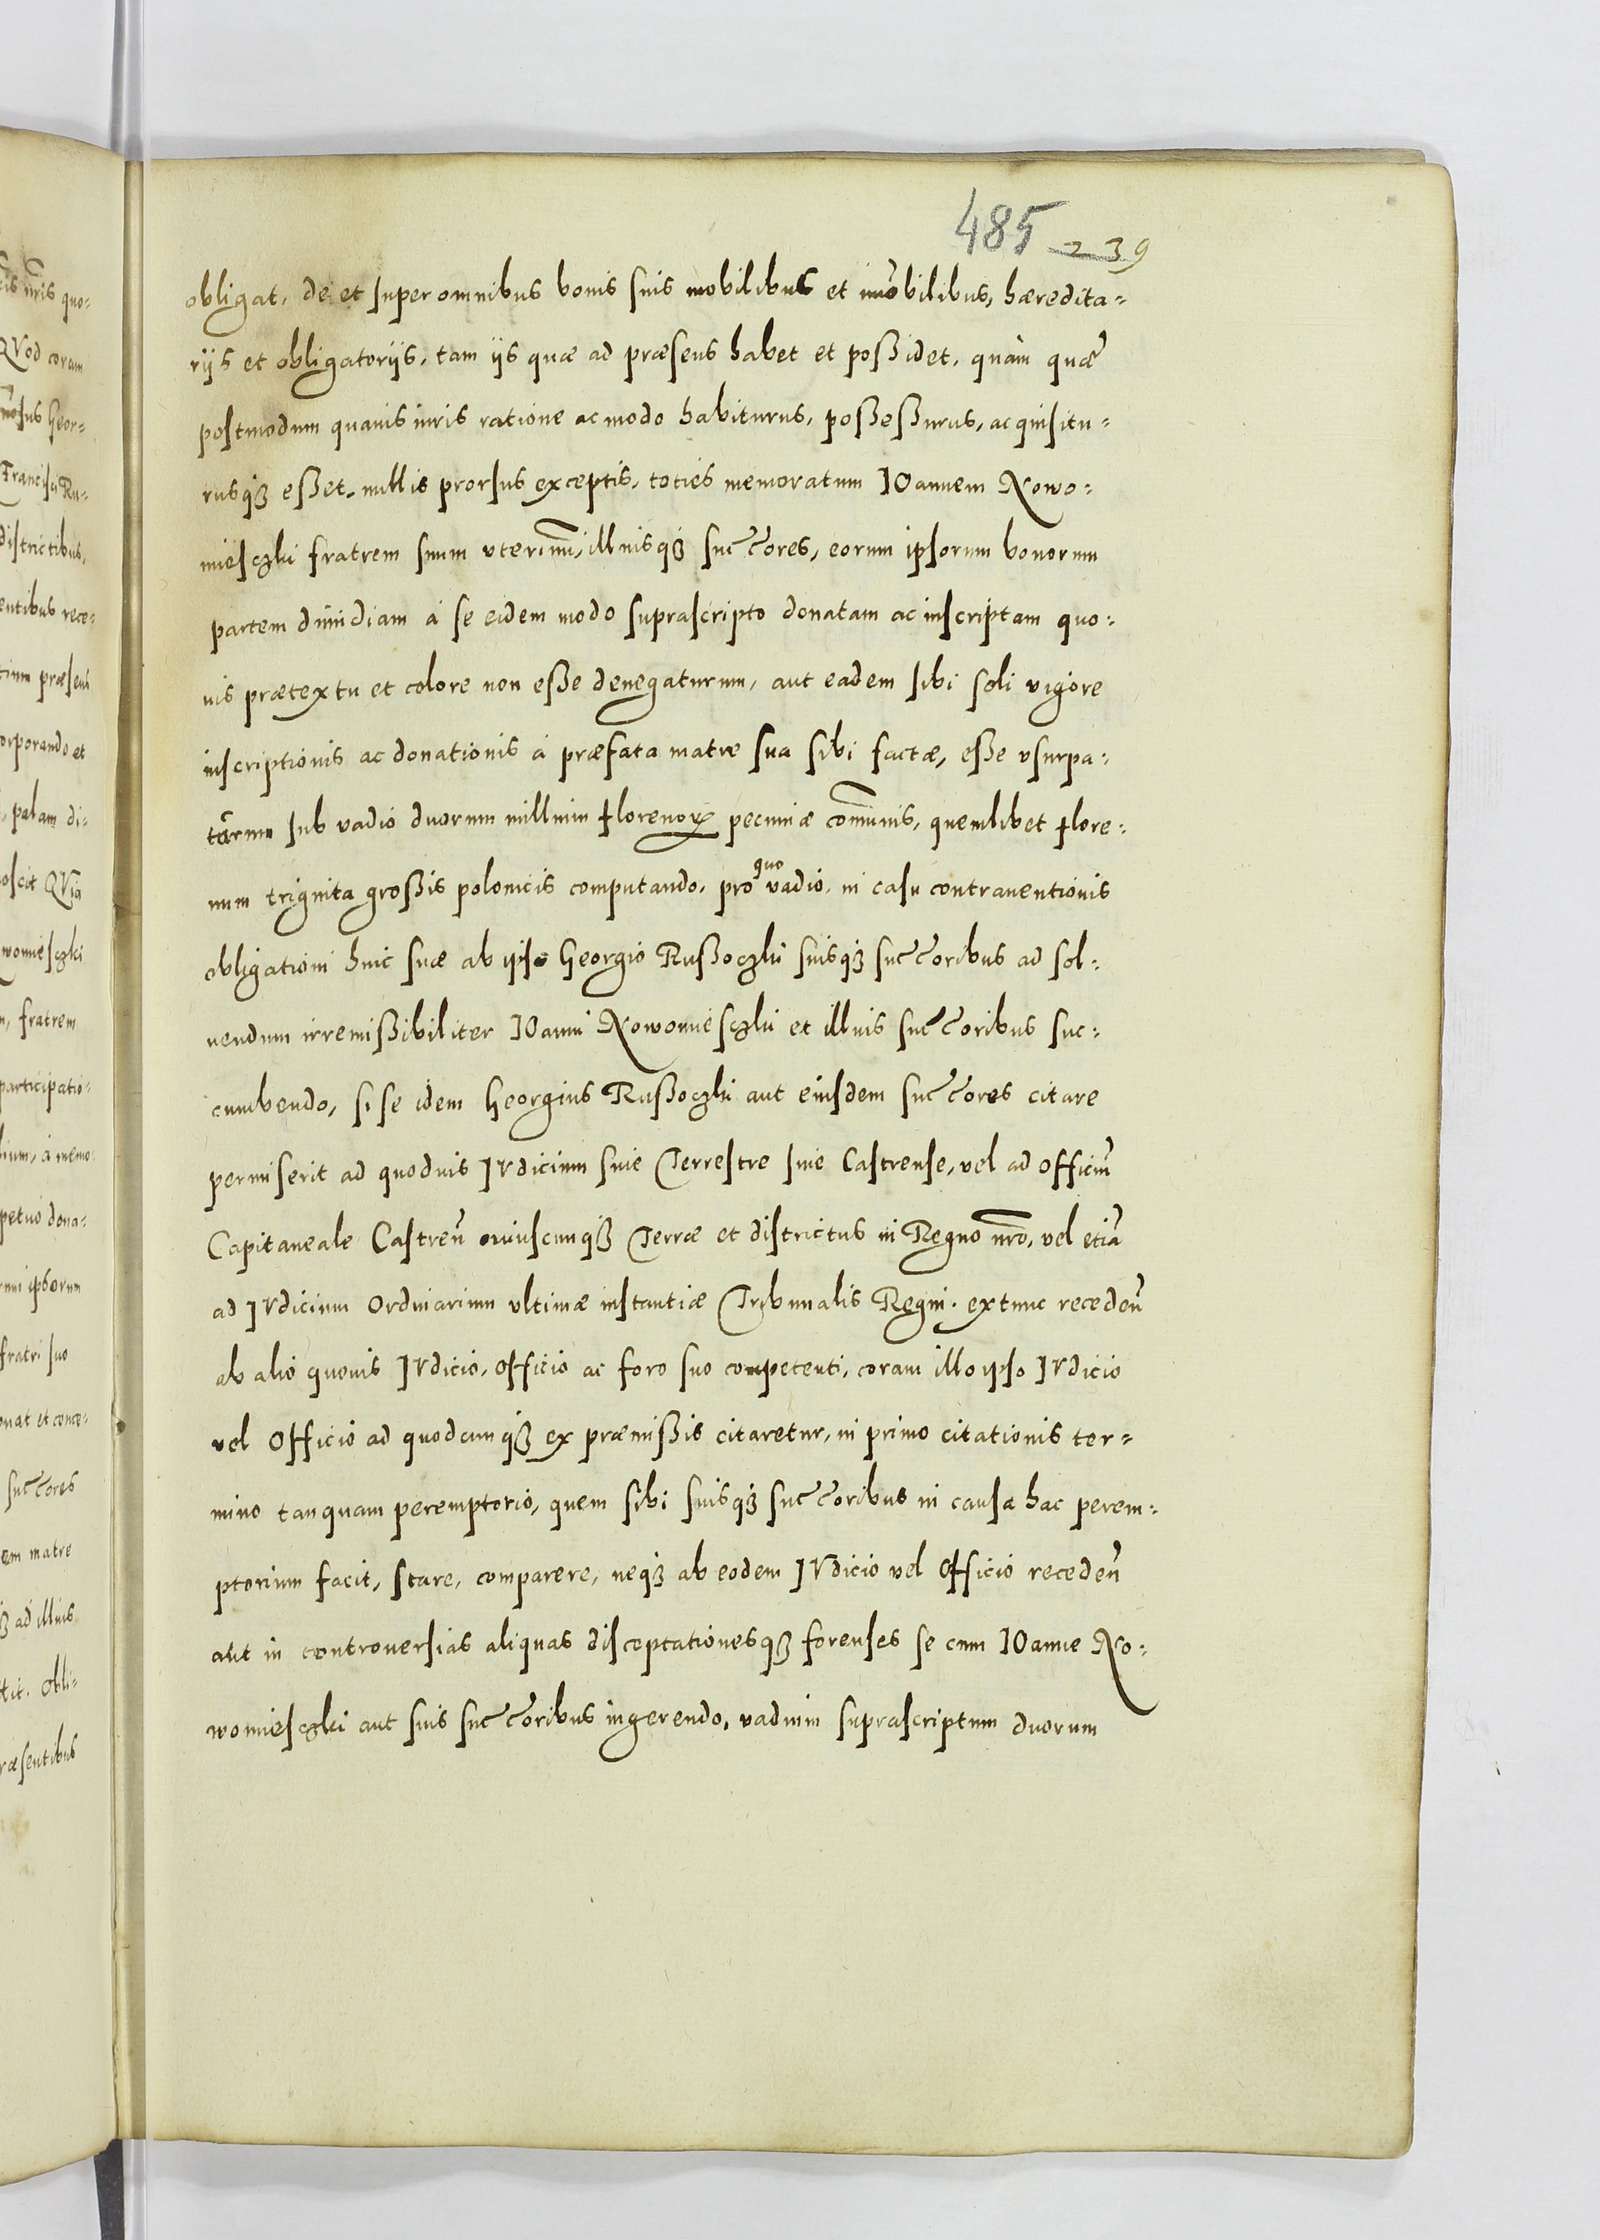 485 239
obligat, de et super omnibus bonis suis mobilibus et im̃obilibus, hæredita=
rijs et obligatorijs, tam ijs quæ ad præsens habet et possidet, quàm quæ
postmodum quauis iuris ratione ac modo habiturus, possessurus, acquisitu=
rusq₃ esset, nullis prorsus exceptis, toties memoratum IOannem Nowo=
mieſczki fratrem suum vterinũ, illiusq₃ succ̃ores, eorum ipsorum bonorum
partem dimidiam à se eidem modo suprascripto donatam ac inscriptam quo=
uis prætextu et colore non esse denegaturum, aut eadem sibi soli vigore
inscriptionis ac donationis à præfata matre sua sibi factæ, esse vsurpa=
turum sub vadio duorum millium florenorꝝ pecuniæ com̃unis, quemlibet flore=
num triginta grossis polonicis computando, pro quo vadio, in casu contrauentionis
obligationi huic suæ ab ipso Georgio Russoczki suisq₃ succ̃oribus ad sol=
uendum irremissibiliter IOanni Nowomieſczki et illius succ̃oribus suc=
cumbendo, si se idem Georgius Russoczki aut eiusdem succ̃ores citare
permiserit ad quoduis IVdicium siue Terrestre siue Castrense, vel ad officiũ
Capitaneale Castreñ cuiuscunq₃ Terræ et districtus in Regno nr̃o, vel etiã
ad IVdicium Ordinarium vltimæ instantiæ Tribunalis Regni. extunc recedeñ
ab alio quouis IVdicio, Officio ac foro suo competenti, coram illo ipso IVdicio
vel Officio ad quodcunq₃ ex præmissis citaretur, in primo citationis ter=
mino tanquam peremptorio, quem sibi suisq₃ succ̃oribus in causa hac perem=
ptorium facit, stare, comparere, neq₃ ab eodem IVdicio vel Officio recedeñ
aut in controuersias aliquas disceptationesq₃ forenses se cum IOanne No=
womieſczki aut suis succ̃oribus ingerendo, vadium suprascriptum duorum